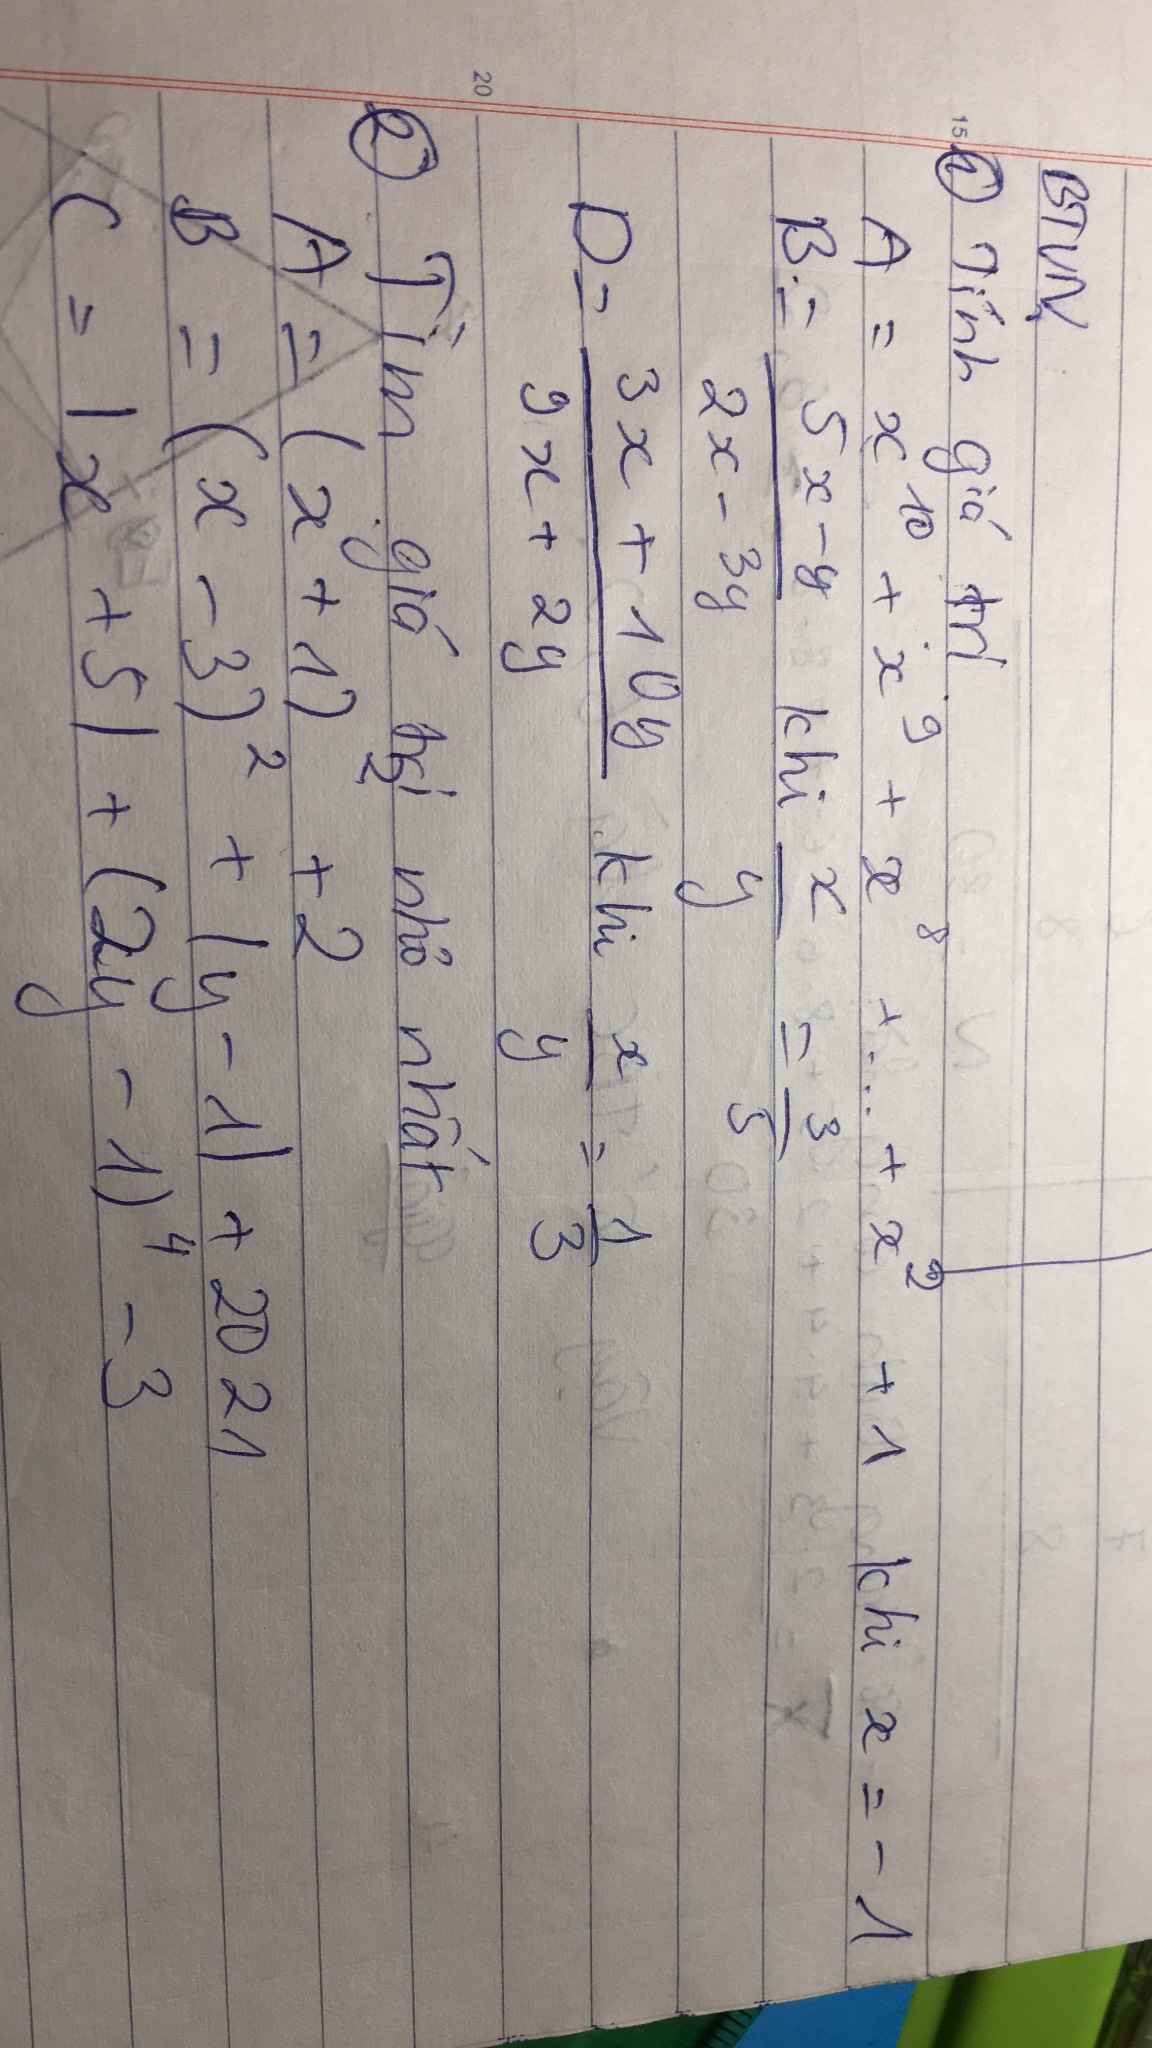 BTVN
15
① Tính giá trị
A = x¹⁰ + x⁹ + x⁸ + ... + x² + 1 khi x = -1
B = (5x - y)/(2x - 3y) khi x/y = 3/5
D = (3x + 10y)/(9x + 2y) khi x/y = 1/3
20
② Tìm giá trị nhỏ nhất
A = (x + 1)² + 2
B = (x - 3)² + |y - 1| + 2021
C = |x + 5| + (2y - 1)⁴ - 3